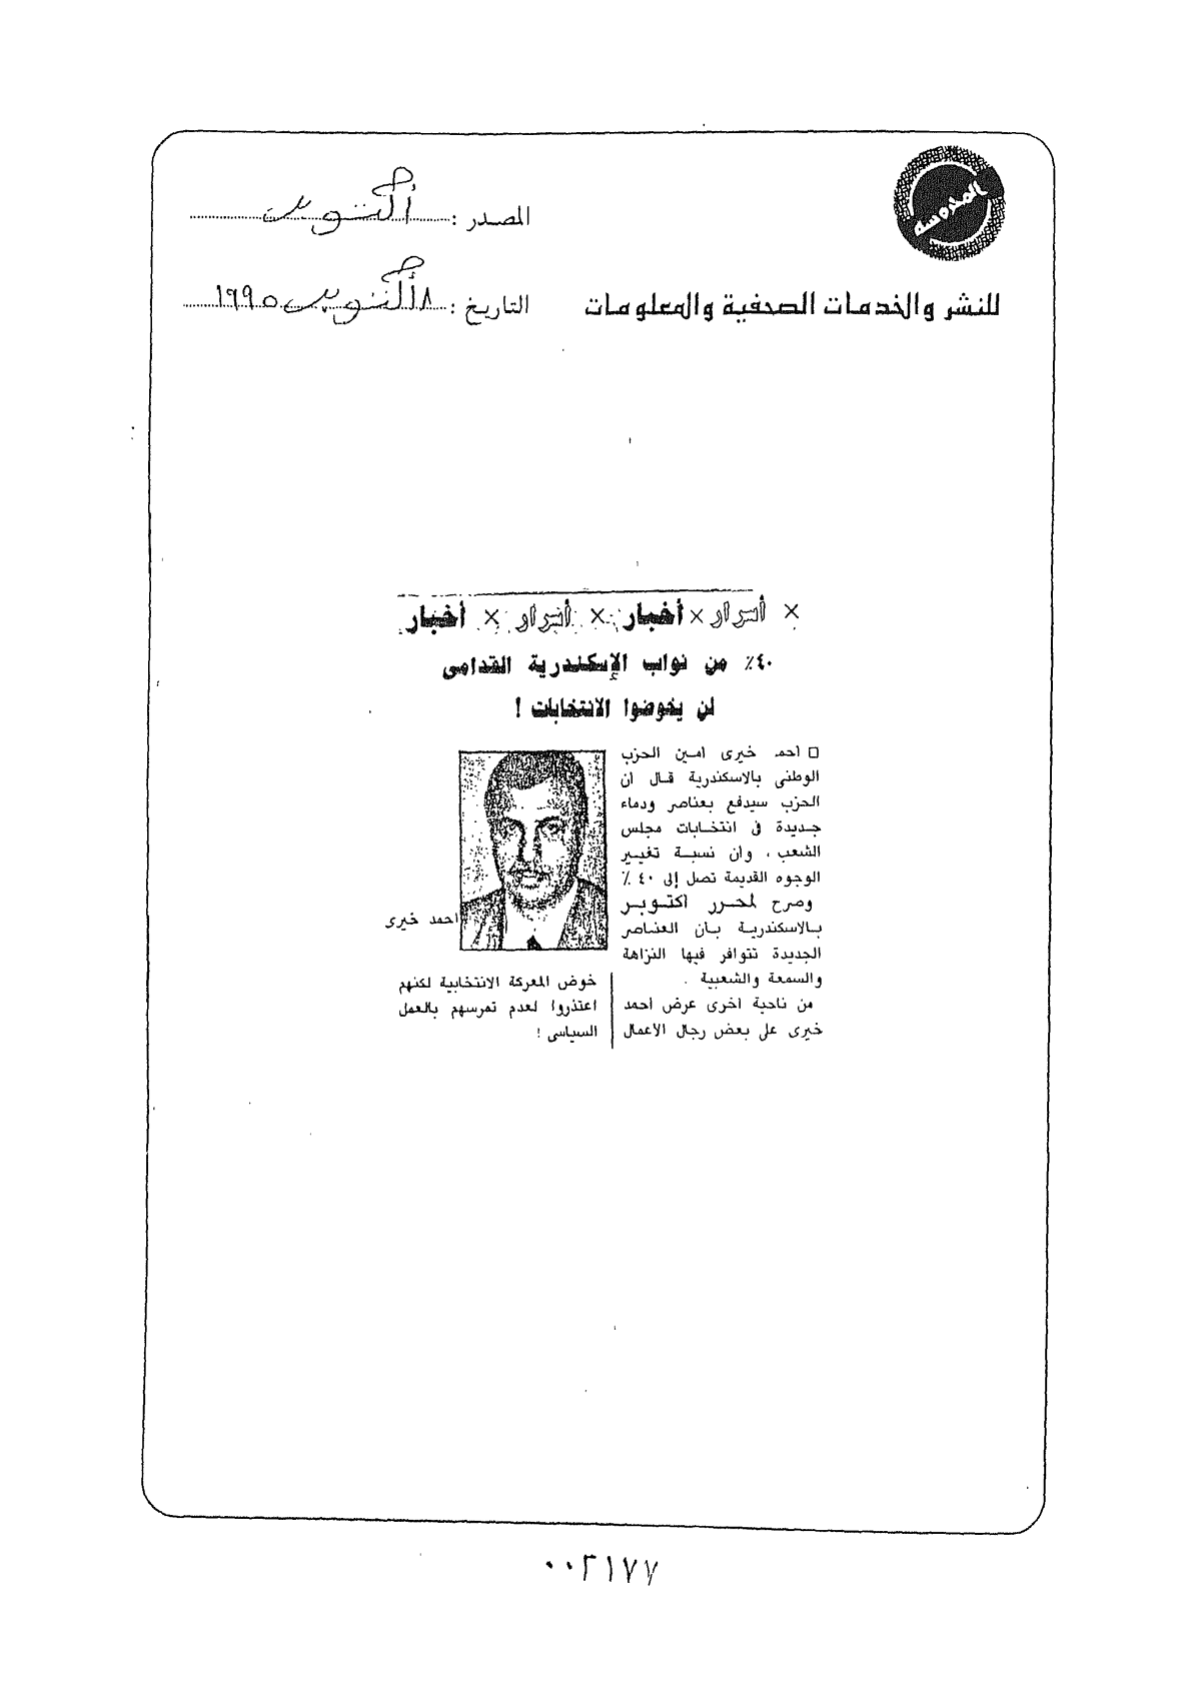 المدوسة
المصدر : أكتوبر
للنشر والخدمات الصحفية والمعلومات
التاريخ : ٨ أكتوبر ١٩٩٥
× أسرار × أخبار × أسرار × أخبار
٤٠٪ من نواب الإسكندرية القدامى
لن يخوضوا الانتخابات !
□ احمد خيرى امين الحزب
الوطنى بالاسكندرية قال ان
الحزب سيدفع بعناصر ودماء
جديدة فى انتخابات مجلس
الشعب ، وان نسبة تغيير
الوجوه القديمة تصل إلى ٤٠ ٪
وصرح لمحرر اكتوبر
بالاسكندرية بان العناصر
الجديدة تتوافر فيها النزاهة
والسمعة والشعبية .
من ناحية اخرى عرض احمد
خيرى على بعض رجال الاعمال
احمد خيرى
خوض المعركة الانتخابية لكنهم
اعتذروا لعدم تمرسهم بالعمل
السياسى !
٠٠٢١٧٧